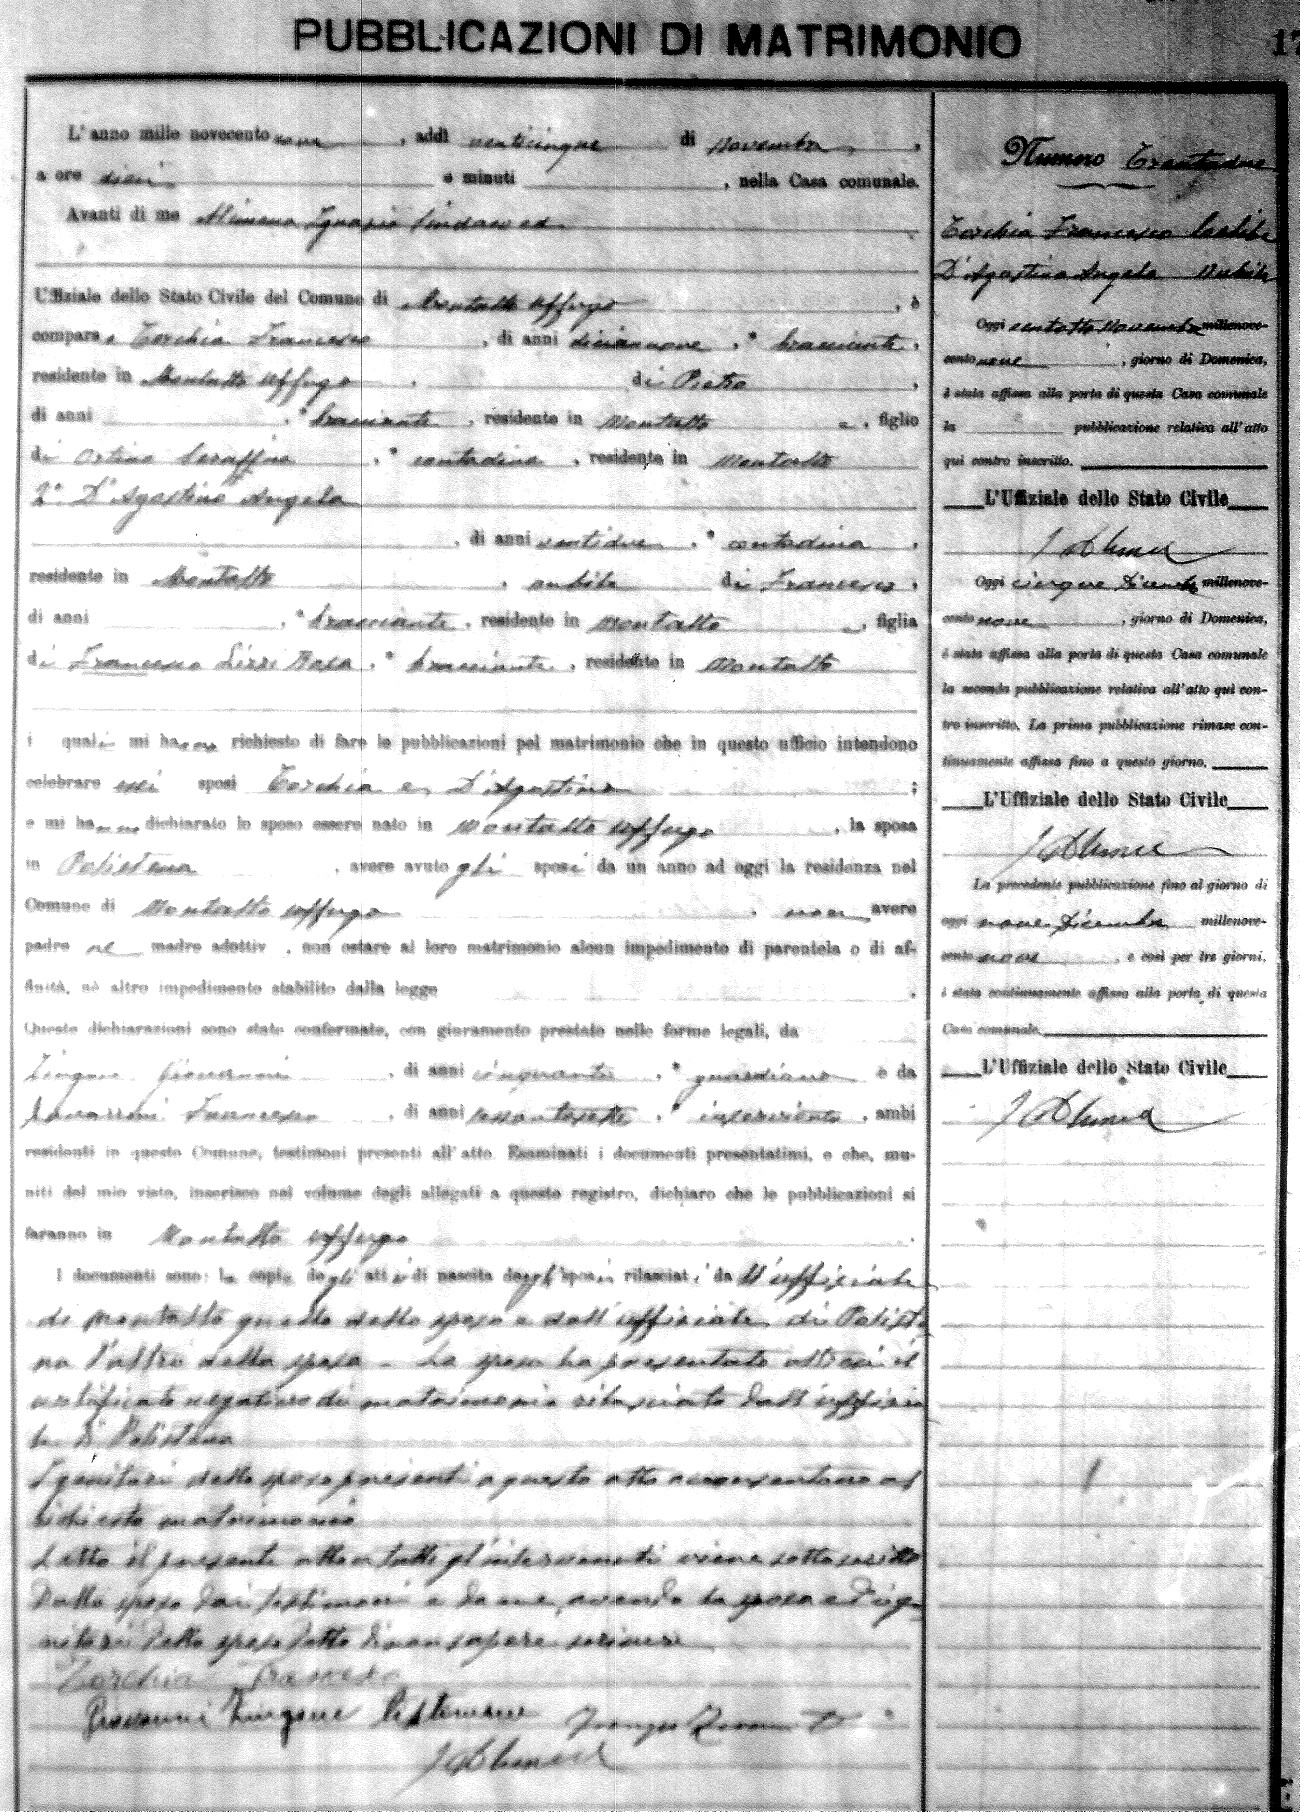 PUBBLICAZIONI DI MATRIMONIO
17
L'anno mille novecento nove, addì venticinque di Novembre,
a ore dieci e minuti, nella Casa comunale.
Avanti di me Alimena Ignazio Sindaco ed
Uffiziale dello Stato Civile del Comune di Montalto Uffugo, è
compars Torchia Francesco, di anni diciannove, bracciante,
residente in Montalto Uffugo di Pietro
di anni, bracciante, residente in Montalto, figlio
di Ortino Seraffina, contadina, residente in Montalto
2° D'Agostino Angela
di anni ventidue, contadina,
residente in Montalto, nubile di Francesco,
di anni, bracciante, residente in Montalto, figlia
di Francesca Lizzi Rosa, bracciante, residente in Montalto
i quali mi hanno richiesto di fare le pubblicazioni pel matrimonio che in questo ufficio intendono
celebrare essi sposi Torchia e D'Agostino;
e mi hanno dichiarato lo sposo essere nato in Montalto Uffugo, la sposa
in Polistena, avere avuto gli sposi da un anno ad oggi la residenza nel
Comune di Montalto Uffugo, non avere
padre ne madre adottiv, non ostare al loro matrimonio alcun impedimento di parentela o di af-
finità, nè altro impedimento stabilito dalla legge.
Queste dichiarazioni sono state confermate, con giuramento prestato nelle forme legali, da
Zingone Giovanni, di anni cinquanta, guardiano e da
Francesco, di anni sessantasette, inserviente, ambi
residenti in questo Comune, testimoni presenti all'atto. Esaminati i documenti presentatimi, e che, mu-
niti del mio visto, inserisco nel volume degli allegati a questo registro, dichiaro che le pubblicazioni si
faranno in Montalto Uffugo.
I documenti sono: le copie degli atti di nascita degli sposi rilasciati da ll'uffiziale
di Montalto quello dello sposo e dall'uffiziale di Poliste
na l'altro della sposa - La sposa ha presentato altresì il
certificato negativo di matrimonio rilasciato dall'uffizia
le di Polistena
I genitori dello sposo presenti a questo atto acconsentono al
richiesto matrimonio
Letto il presente atto a tutti gl'intervenuti viene sottoscritto
dallo sposo dai testimoni e da me, avendo la sposa ed i ge
nitori dello sposo detto di non sapere scrivere
Torchia Francesco
Giovanni Zingone Testimone
Numero Trentadue
Torchia Francesco Celibe
D'Agostino Angela Nubile
Oggi ventotto Novembre millenove-
cento nove, giorno di Domenica,
è stata affissa alla porta di questa Casa comunale
la pubblicazione relativa all'atto
qui contro inscritto.
L'Uffiziale dello Stato Civile
Oggi cinque Dicembre millenove-
cento nove, giorno di Domenica,
è stata affissa alla porta di questa Casa comunale
la seconda pubblicazione relativa all'atto qui con-
tro inscritto. La prima pubblicazione rimase con-
tinuamente affissa fino a questo giorno.
L'Uffiziale dello Stato Civile
La precedente pubblicazione fino al giorno di
oggi nove Dicembre millenove-
cento nove, e così per tre giorni,
è stata continuamente affissa alla porta di questa
Casa comunale.
L'Uffiziale dello Stato Civile